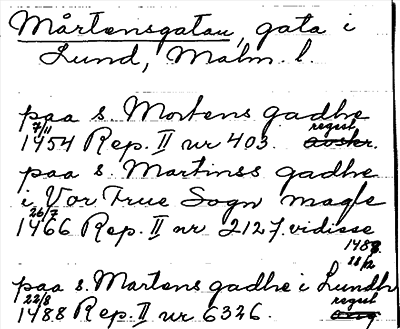 Mårtensgatan, gata i
Lund, Malm. l.
paa s. Mortens gadhe
7/11 regest
1454 Rep. II nr 403. avskr.
paa s. Martinss gadhe
i Vor Frue Sogn magle
26/7
1466 Rep. II nr 2127. vidisse
1488
22/12
paa s. Martens gadhe i Lundh
22/8 regest
1488 Rep. II nr 6326.